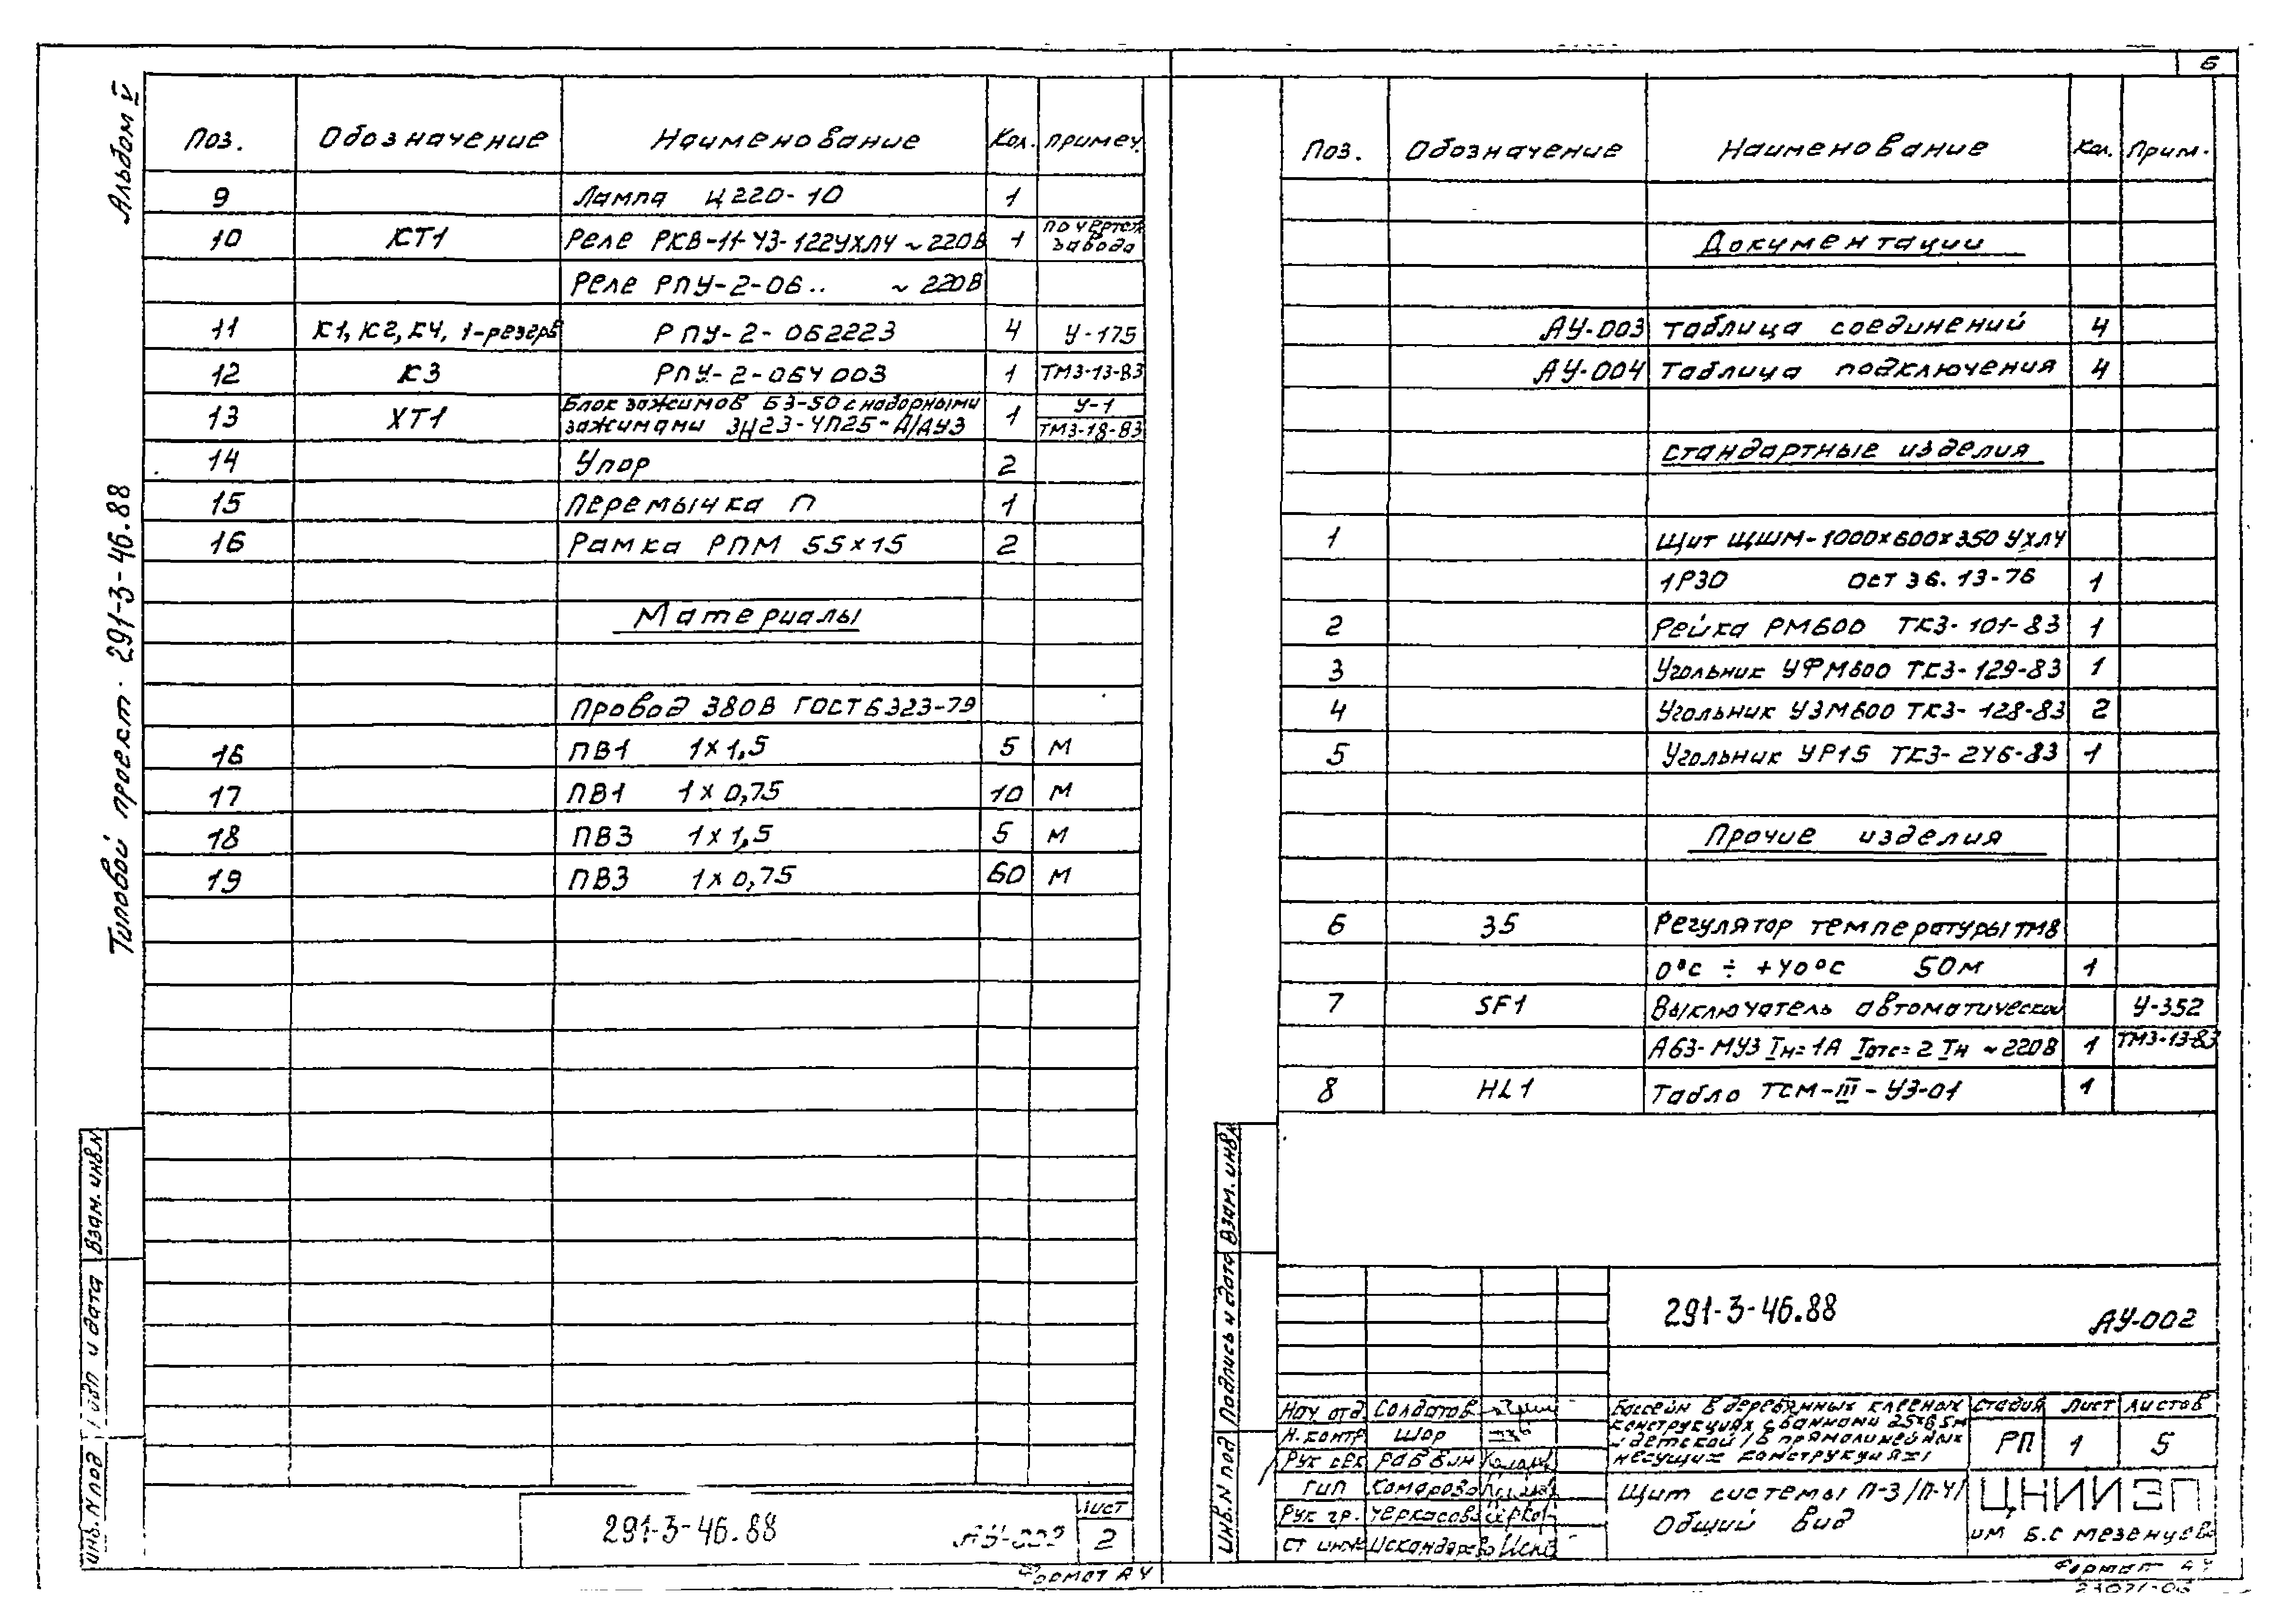 6
Альбом V
Типовой проект 291-3-46.88
Поз. Обозначение Наименование Кол. Примеч.
9 Лампа Ц220-10 1
10 КТ1 Реле РКВ-11-УЗ-122УХЛ4 ~220В 1 по чертеж завода
Реле РПУ-2-06.. ~220В
11 К1, К2, К4, 1-резерв РПУ-2-062223 4 У-175
12 К3 РПУ-2-064003 1 ТМ3-13-83
13 ХТ1 Блок зажимов БЗ-50 с наборными 1 У-1
зажимами ЗН23-4П25-Д/ДУЗ ТМ3-18-83
14 Упор 2
15 Перемычка П 1
16 Рамка РПМ 55х15 2
Материалы
Провод 380В ГОСТ 6323-79
16 ПВ1 1х1,5 5 м
17 ПВ1 1х0,75 10 м
18 ПВ3 1х1,5 5 м
19 ПВ3 1х0,75 60 м
Взам. инв.N
дата
Инв. N под
291-3-46.88
Лист
2
Формат А4
Поз. Обозначение Наименование Кол. Прим.
Документации
АУ-003 Таблица соединений 4
АУ-004 Таблица подключения 4
Стандартные изделия
1 Щит ЩШМ-1000х600х350 УХЛ4
1Р30 ОСТ 36.13-76 1
2 Рейка РМ600 ТК3-101-83 1
3 Угольник УФМ600 ТК3-129-83 1
4 Угольник УЗМ600 ТК3-128-83 2
5 Угольник УР15 ТК3-246-83 1
Прочие изделия
6 35 Регулятор температуры ТМ8
0°С ÷ +40°С 50м 1
7 SF1 Выключатель автоматический У-352
А63-МУЗ Iн=1А Iотс=2 Iн ~220В 1 ТМ3-13-83
8 HL1 Табло ТСМ-III-УЗ-01 1
Взам. инв.
Подпись и дата
Инв. N под
291-3-46.88
АУ-002
Нач. отд Солдатов
Н. контр Шор
Рук Раввин
ГИП Комарова
Рук гр. Черкасова
Ст инж Искандарова
Бассейн в деревянных клееных
конструкциях с ваннами 25х8,5м
и детской /в прямолинейных
несущих конструкциях/
Стадия Лист Листов
РП 1 5
Щит системы П-3/П-4/
Общий вид
ЦНИИЭП
им Б.С Мезенцева
Формат А4